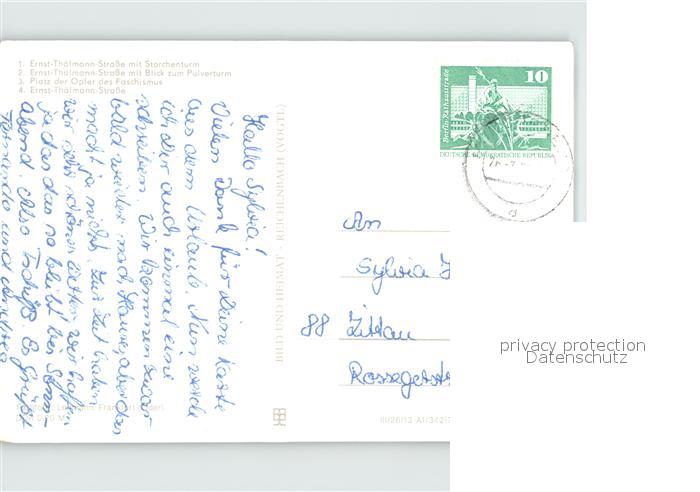 1. Ernst-Thälmann-Straße mit Storchenturm
2. Ernst-Thälmann-Straße mit Blick zum Pulverturm
3. Platz der Opfer des Faschismus
4. Ernst-Thälmann-Straße
10
Berlin, Rathausstraße
DEUTSCHE DEMOKRATISCHE REPUBLIK
Hallo Sylvia!
Vielen Dank für Deine Karte
aus dem Urlaub. Nun werde
ich Dir auch einmal eine
schreiben. Wir kommen zwar
bald wieder nach Hause, aber das
macht ja nichts. Zur Zeit haben
wir sehr schönes Wetter. Wir hoffen
ja, das das so bleibt bis Sonn-
abend. Also Tschüß. Es grüßt
und
BILD UND HEIMAT · REICHENBACH (VOGTL)
An
Sylvia
88 Zittau
III/26/13 A1/342/
privacy protection
Datenschutz